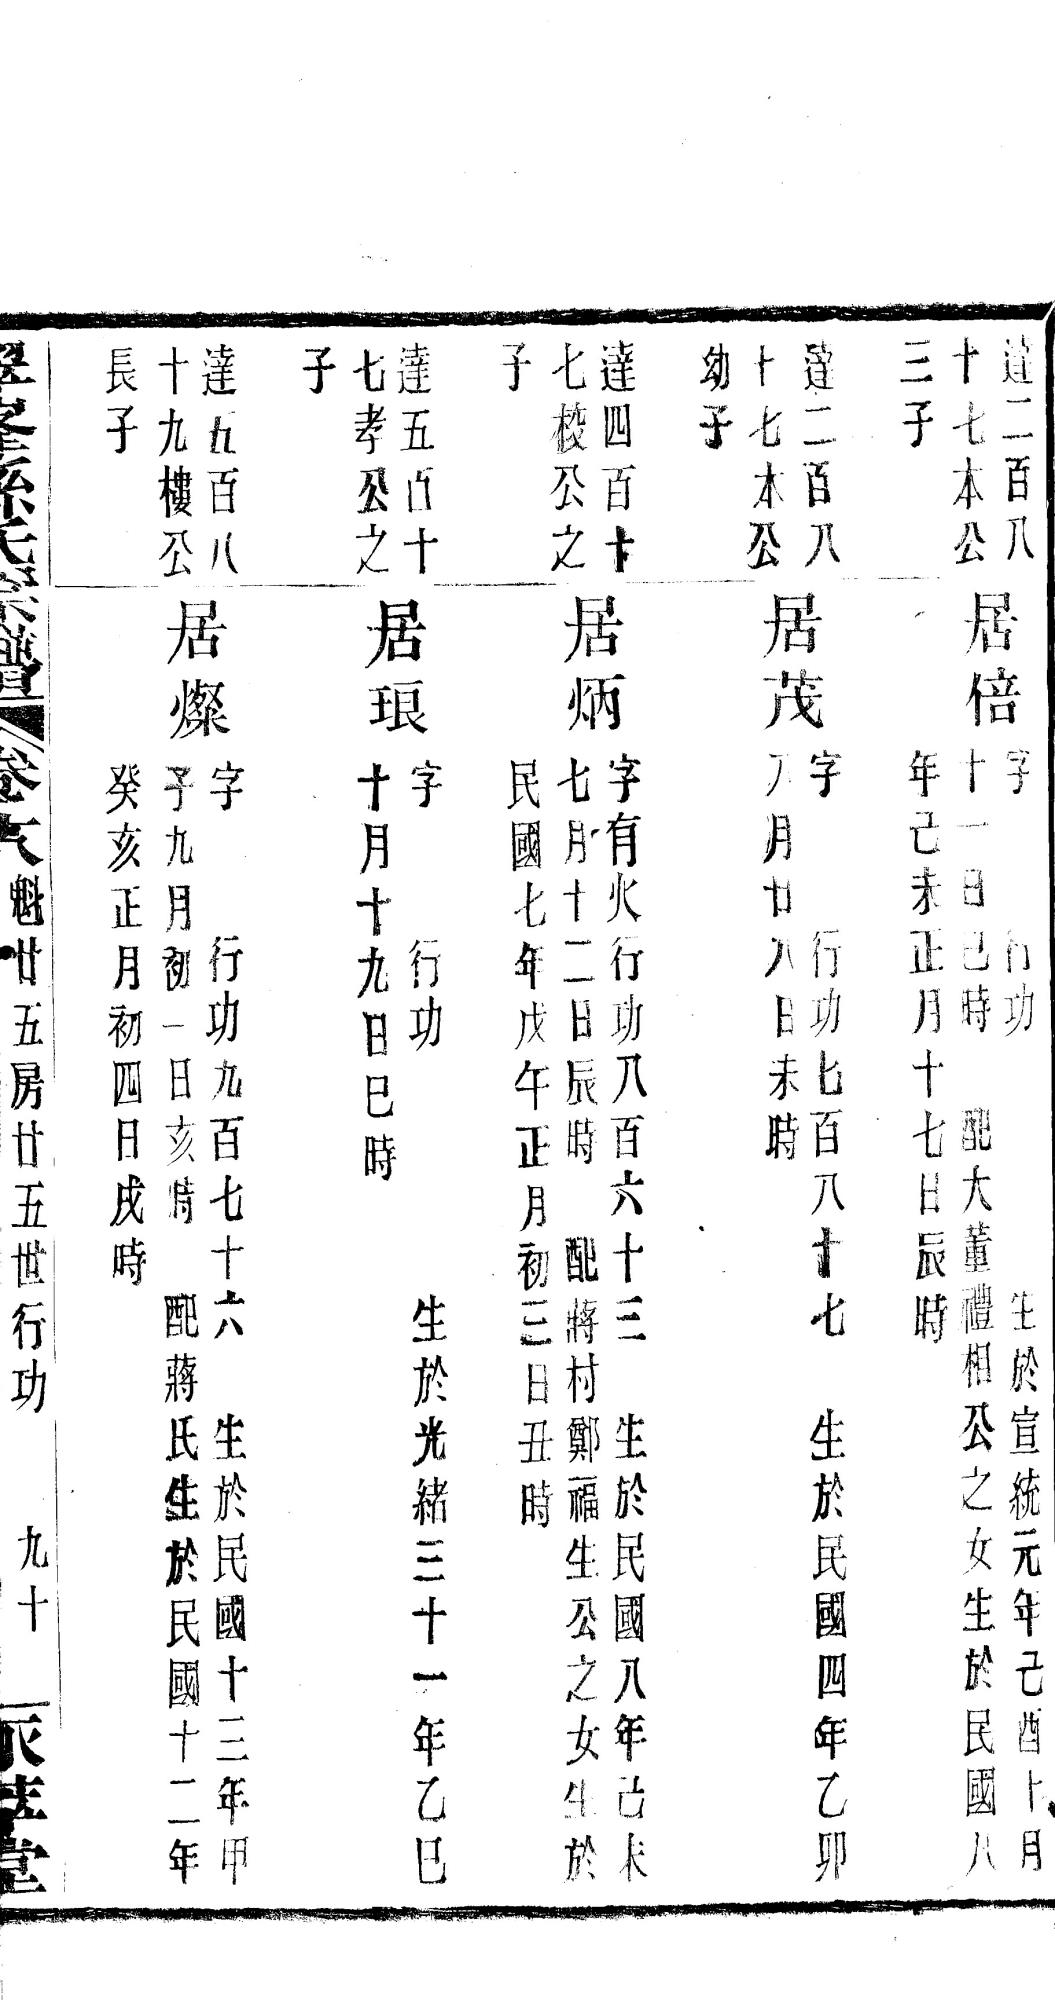 達二百八
十七本公
三子
居倍
字 行功 生於宣統元年己酉十月
十一日巳時 配大董禮相公之女生於民國八
年己未正月十七日辰時
達二百八
十七本公
幼子
居茂
字 行功七百八十七 生於民國四年乙卯
八月廿八日未時
達四百十
七校公之
子
居炳
字有火行功八百六十三 生於民國八年己未
七月十二日辰時 配蔣村鄭福生公之女生於
民國七年戊午正月初三日丑時
達五百十
七孝公之
子
居琅
字 行功 生於光緒三十一年乙巳
十月十九日巳時
達五百八
十九樓公
長子
居燦
字 行功九百七十六 生於民國十三年甲
子九月初一日亥時 配蔣氏生於民國十二年
癸亥正月初四日戌時
孫氏宗譜 卷 魁廿五房廿五世行功 九十 堂